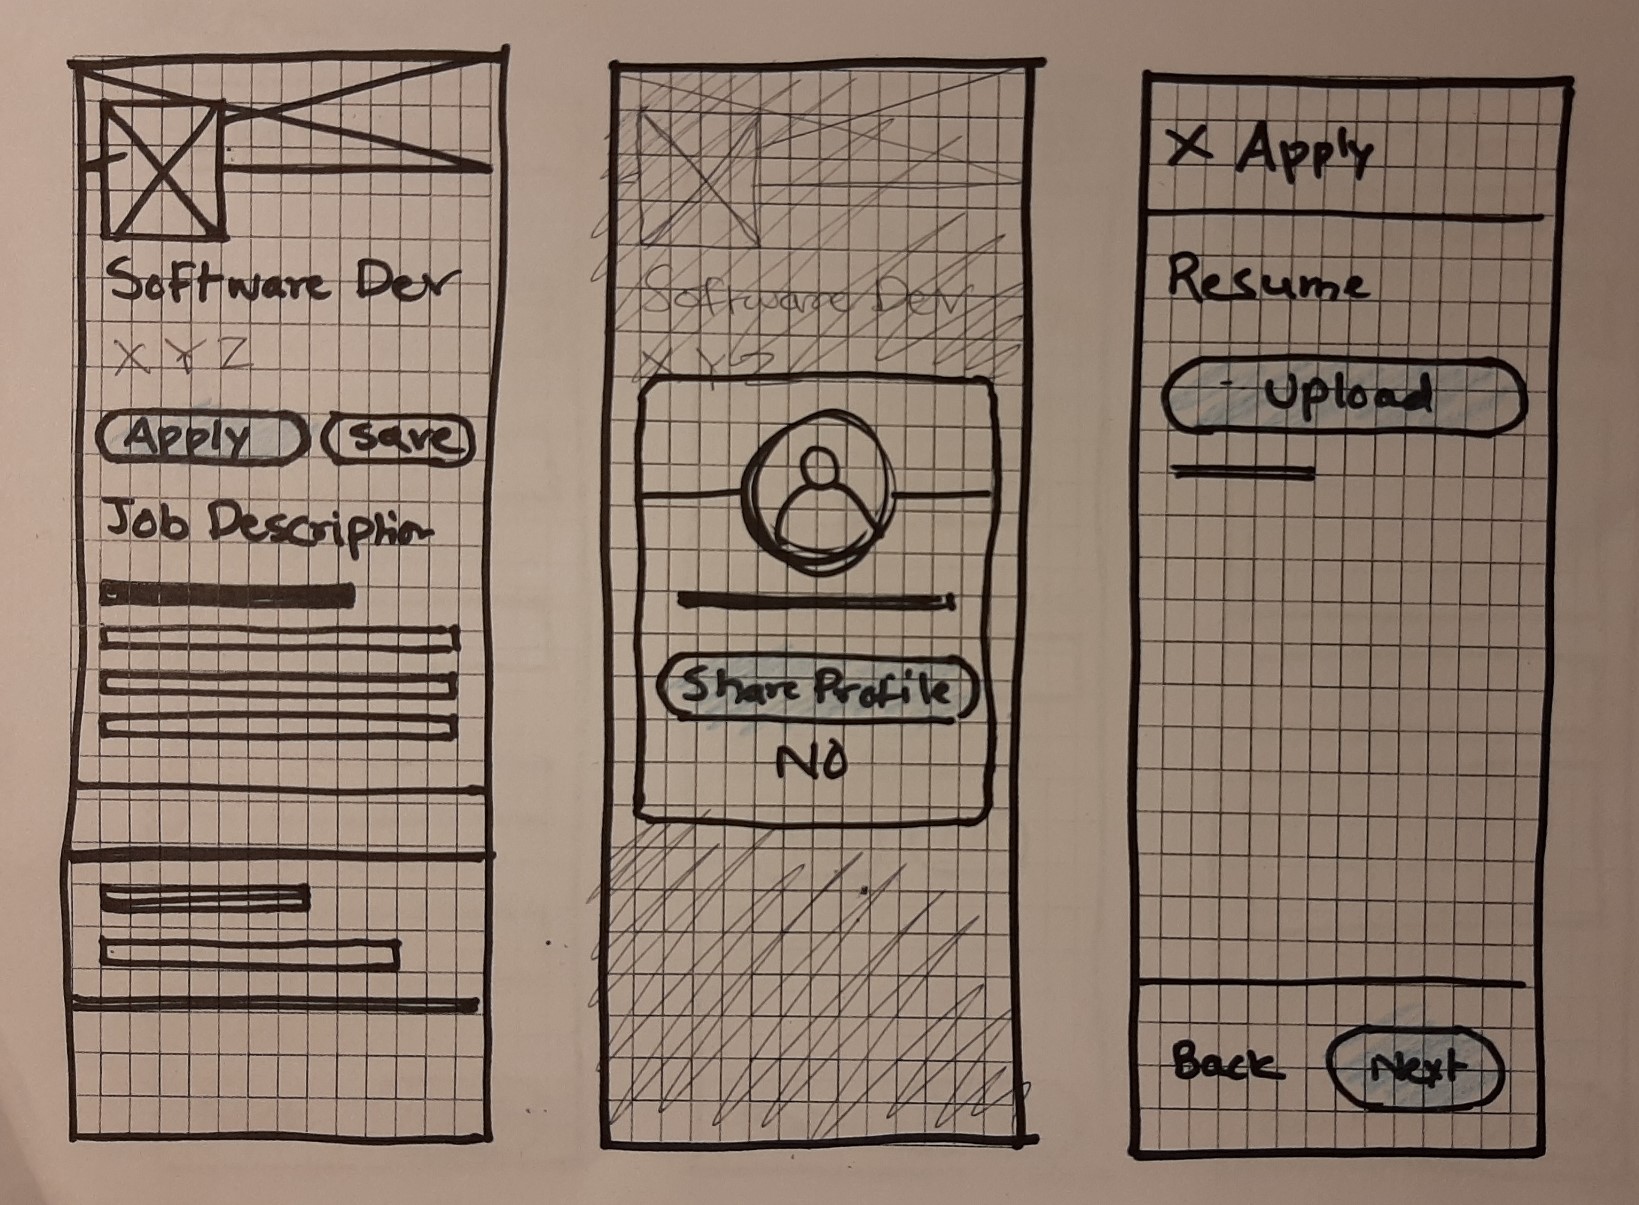 Software Dev
X Y Z
Apply save
Job Description
Software Dev
X Y Z
Share Profile
NO
X Apply
Resume
Upload
Back Next